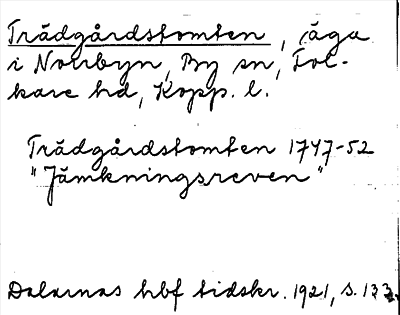 Trädgårdstomten, äga
i Norrbyn, By sn, Fol-
kare hd, Kopp. l.
Trädgårdstomten 1747-52
"Jämkningsreven"
Dalarnas hbf tidskr. 1921, s. 133.